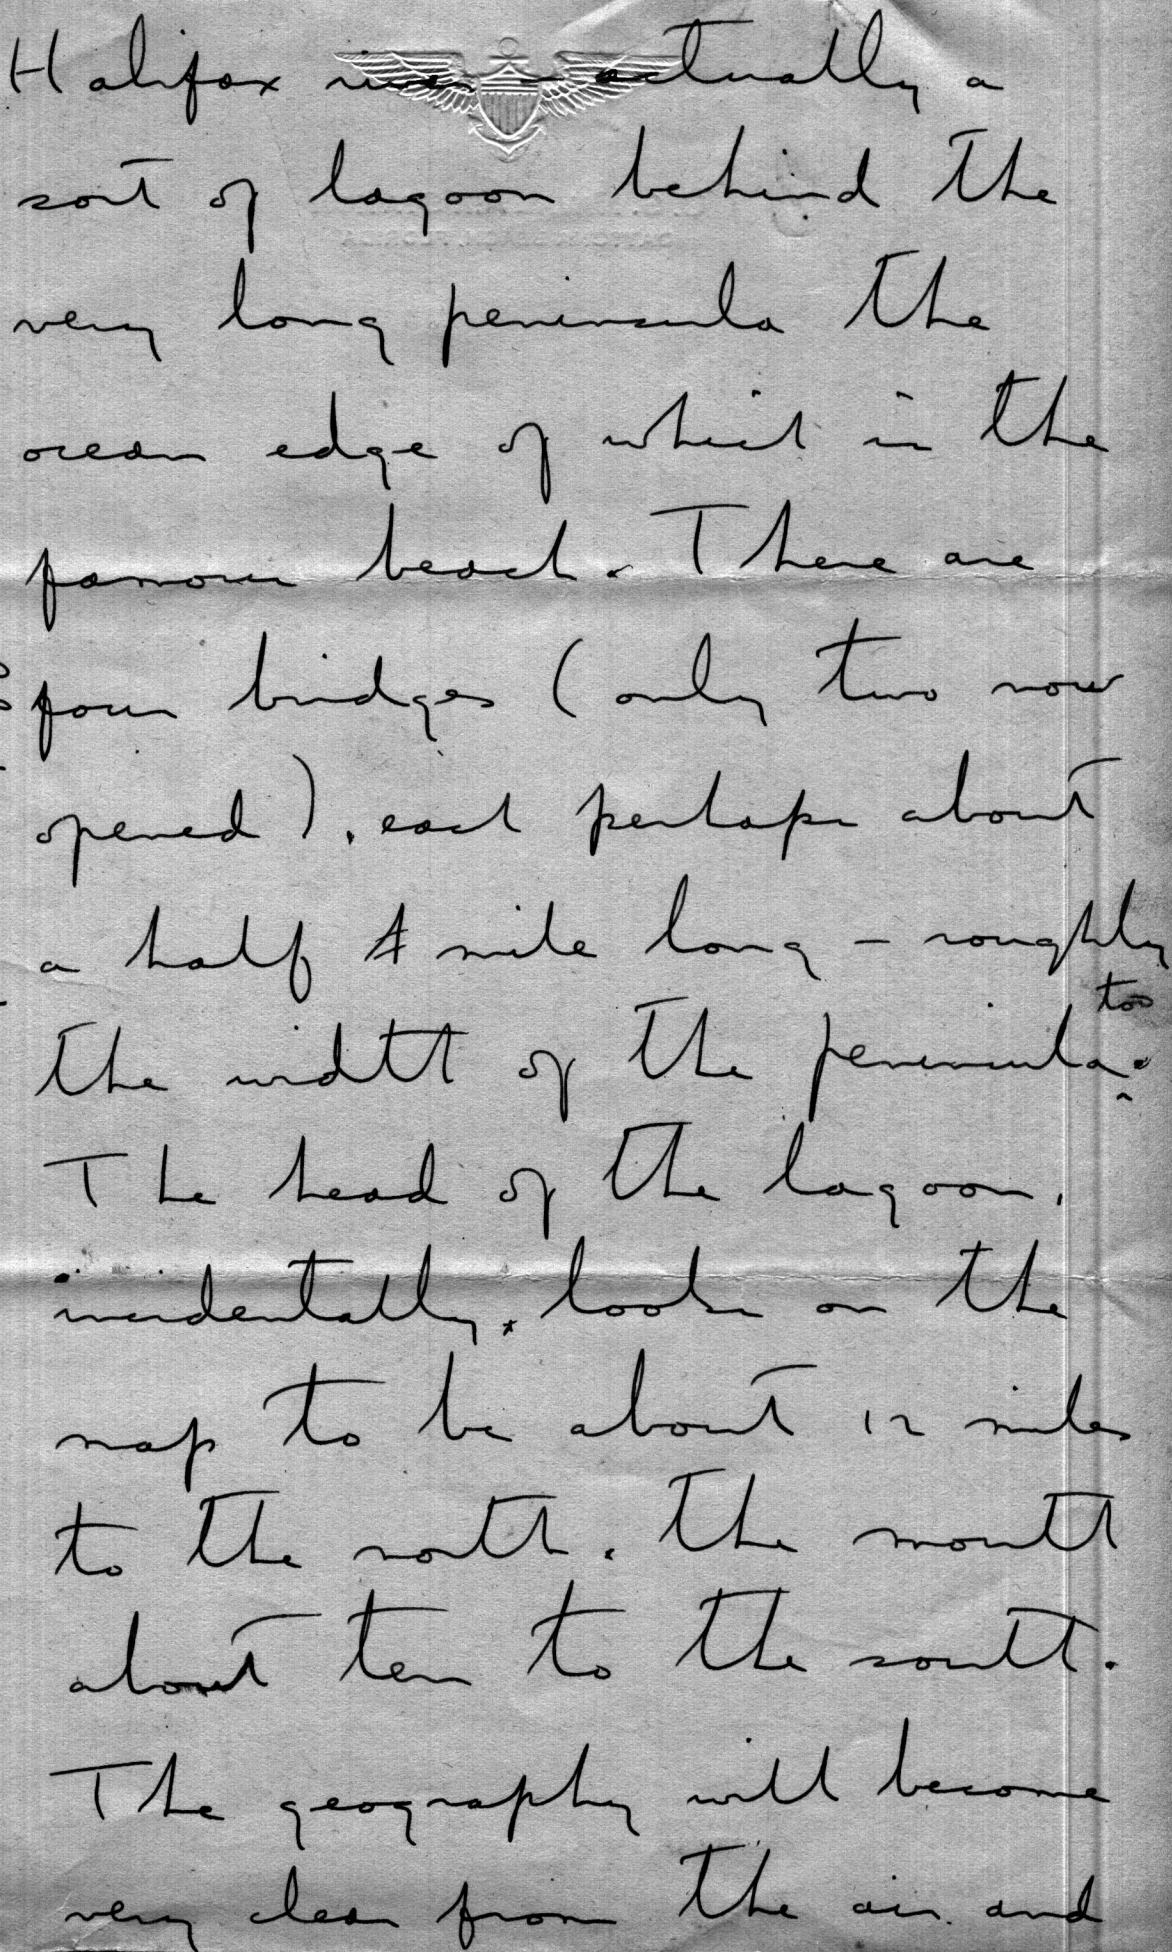 Halifax river - actually a
sort of lagoon behind the
very long peninsula the
ocean edge of which is the
famous beach. There are
four bridges (only two now
opened), each perhaps about
a half mile long - roughly
the width of the peninsula too.
The head of the lagoon,
incidentally, looks on the
map to be about 12 miles
to the north. The mouth
about ten to the south.
The geography will become
very clear from the air and